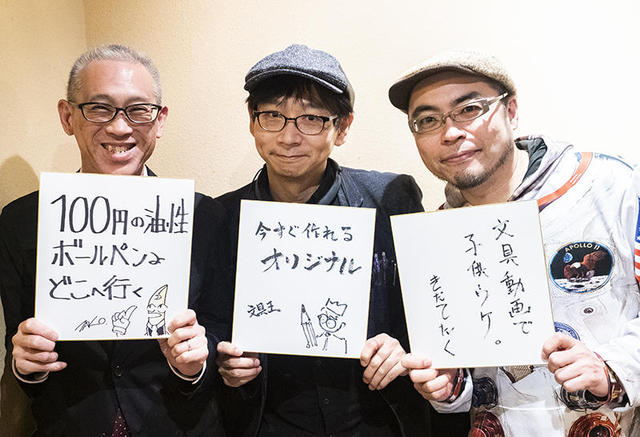 100円の油性
ボールペンよ
どこへ行く
今すぐ作れる
オリジナル
文具王
文具動画で
子供ウケ。
きだてたく
APOLLO 11